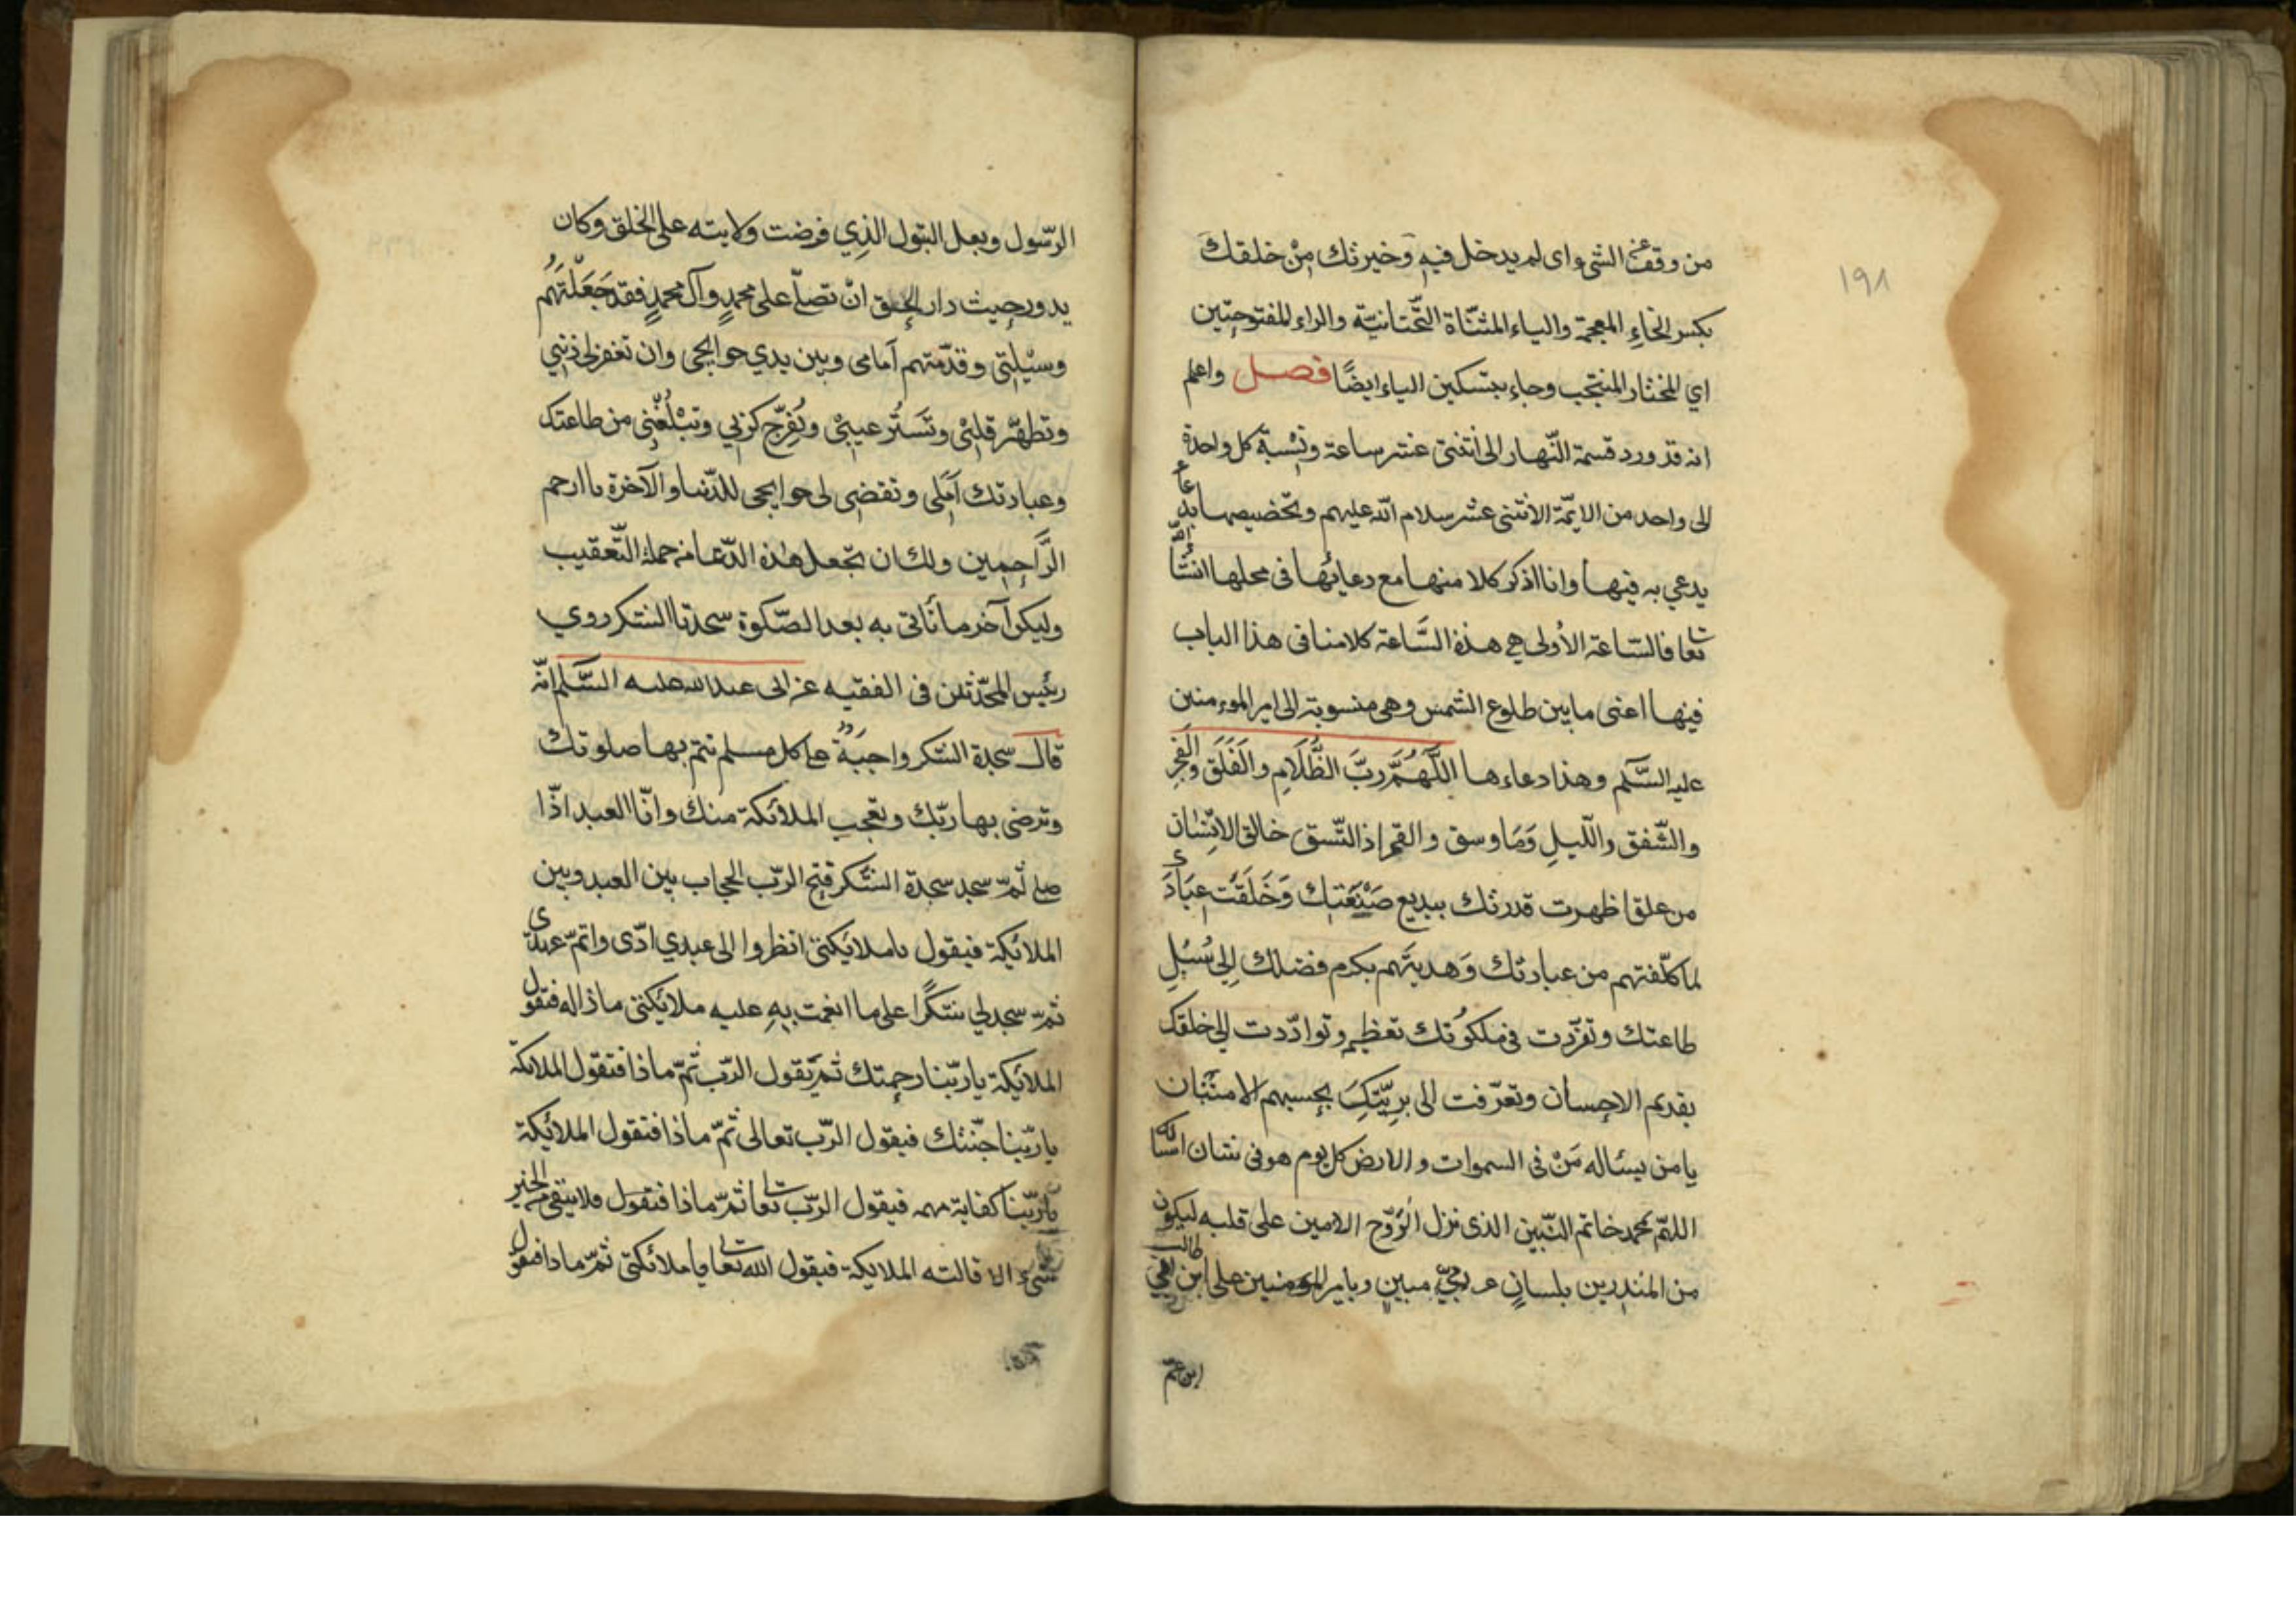 من وقف عن الشئ اى لم يدخل فيه وخيرتك من خلقك
١٩٨
بكسر الخاءِ المعجمة والياء المثنّاة التّحتانيّة والراء المفتوحتين
اي المختار المنتجب وجاء بتسكين الياء ايضًا فصل واعلم
انه قد ورد قسمة النّهار الى اثنتى عشر ساعة ونِسْبة كل واحدة
الى واحد من الايمّة الاثنى عشر سلام الله عليهم وتخصيصها بدعاء
يدعي به فيها وانا اذكر كلا منها مع دعائها فى محلها انشا الله
تعا فالسّاعة الأولى هي هذه السَّاعة كلامنا فى هذا الباب
فيها اعنى ما بين طلوع الشمس وهى منسوبة الى امير الموءمنين
عليه السَّلم وهذا دعاءها اللَّهُمَّ ربَّ الظَّلَامِ والفَلَق والفَجْرِ
والشّفق واللّيلِ وَمَا وسق والقمر اذا اتّسق خالق الانسٰان
من علق اظهرت قدرتك ببديع صَنْعَتِك وَخَلَقْت عِبَادَك
لما كلّفتهم من عبادتك وَهديتَهم بكرم فضلك اِلى سُبُلِ
طاعتك وتفرّدت فى ملكُوتك بعظيم وتوادّدت الى خلقك
بقديم الاحسان وتعرّفت الى برِيّتِكَ بجسيم الامتنان
يا من يسئاله مَنْ فى السموات والارض كل يوم هو فى شان اسئالك
اللهّم بمحمد خاتم النّبين الذى نزل الرُوّح الامين على قلبه ليكون
من المنذرين بلسانٍ عربىٍّ مبين وبامير الموءمنين على ابن ابي طالب
ابن عمّ
الرّسول وبعل البتول الذِي فرضت ولايته على الخلق وكان
يدور حيث دار الحق انْ تصلّ على محمدٍ وآل محمدٍ فقد جَعَلْتَهُم
وسيْلتِى وقدّمتهم اَمامى وبين يدي حوايجى وان تغفر لى ذنبي
وتطهّر قلبْى وتَسَتُر عيبىْ وتُفِرّج كربي وتبْلُغَنِى من طاعتك
وعبادتك اَمَلى وتقضى لى حوايجى للدّنيا والآخرة يا ارحم
الرَّاحِمين ولك ان تجعل هذه الدّعا من جملة التّعقيب
وليكن آخر ما تأتى به بعد الصّلوة سجدتا الشكر روي
رئيس المحدّثين فى الفقيه عن ابى عبد الله عليه السَّلم انّه
قال سجدة الشكر واجبَةٌ على كل مسلم تتم بها صلوتك
وترضى بها ربّك وتعجب الملائكة منك وانّ العبد اذّا
صلى ثمّ سجد سجدة الشّكر فتح الربّ الحجاب بين العبد وبين
الملائيكة فيقول يا ملائيكتى انظروا الى عبدي ادّى واتمّ عهدى
ثمّ سجد لي شكرًا على ما انعمت بهِ عليه ملائيكتى ماذا له فتقول
الملائيكة يا ربّنا رحمتك ثمّ يَقول الربّ ثمّ ماذا فتقول الملائكة
يا ربّنا جنّتك فيقول الرّب تعالى ثمّ ماذا فتقول الملائيكة
يا ربّنا كفاية مهمه فيقول الربّ تعا ثمّ ماذا فتقول فلا يبقى من الخير
شىء الا قالته الملايكة فيقول الله تعا يا ملائكتى ثمّ ماذا فتقول